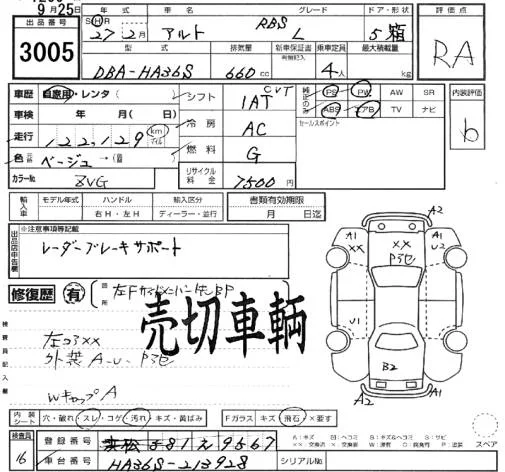 9月25日
出品番号 年式 車名 グレード ドア・形状 評価点
3005 SH 27年2月 アルト RBS L 5 箱 RA
型式 排気量 新車保証書 乗車定員 最大積載量
有無記入
DBA-HA36S 660cc 4人 kg
車歴 自家用・レンタ( ) シフト CVT IAT 純正のみ PS PW AW SR 内装評価
ABS エアB TV ナビ b
車検 年 月(日) 冷房 AC セールスポイント
走行 122,129 km マイル
色 元色 ベージュ→( 燃料 G
カラーNo. ZVG リサイクル料金 7500円
輸入車 モデル年式 ハンドル 輸入区分 書類有効期限
右H・左H ディーラー・並行 月 日迄
出品店申告欄 ※注意事項等記載
レーダーブレーキサポート
修復歴 有 箇所
売切車輌
検査員記入欄
左コラXX
外装A-u・Pラセ
WキャップA
A2
A1 XX A1
XX U2
U1
B2
A2 A1
内装シート 穴・破れ スレ・コゲ 汚れ・キズ・黄ばみ Fガラス キズ 飛石・×要す
スペア
検査員 登録番号 浜松 581 え 9567
16 車台番号 HA36S-213928 シリアルNo.